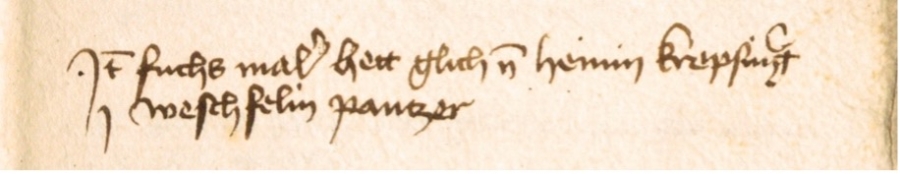 It fuchs maler hett glich n̄ heinin krepsinḡ
j weschfelin pantzer